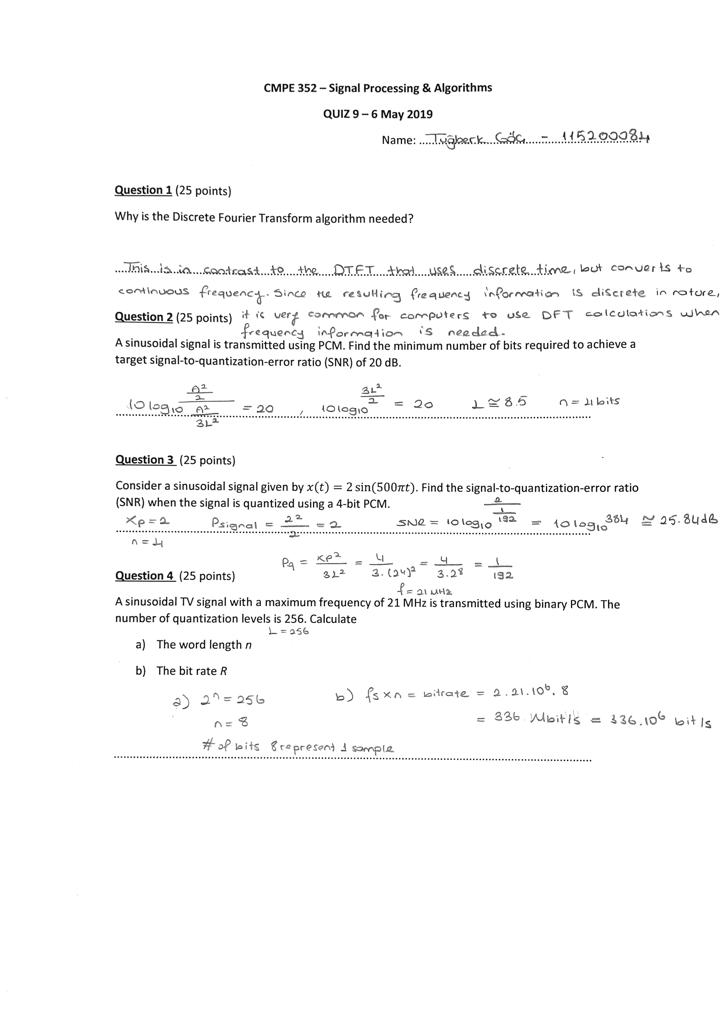 CMPE 352 – Signal Processing & Algorithms
QUIZ 9 – 6 May 2019
Name: .....Tuğberk Göç - 115200084
Question 1 (25 points)
Why is the Discrete Fourier Transform algorithm needed?
....This is in contrast to the DTFT that uses discrete time, but converts to
continuous frequency. Since the resulting frequency information is discrete in nature,
Question 2 (25 points) it is very common for computers to use DFT calculations when
frequency information is needed.
A sinusoidal signal is transmitted using PCM. Find the minimum number of bits required to achieve a
target signal-to-quantization-error ratio (SNR) of 20 dB.
10 log₁₀ (A²/2)/(A²/3L²) = 20 , 10 log₁₀ 3L²/2 = 20 L ≅ 8.5 n = 4 bits
Question 3 (25 points)
Consider a sinusoidal signal given by x(t) = 2 sin(500πt). Find the signal-to-quantization-error ratio
(SNR) when the signal is quantized using a 4-bit PCM.
xp = 2 Psignal = 2²/2 = 2 SNR = 10 log₁₀ 2/(1/192) = 10 log₁₀ 384 ≅ 25.84 dB
n = 4
Pq = xp²/3L² = 4/3.(2⁴)² = 4/3.2⁸ = 1/192
Question 4 (25 points)
f = 21 MHz
A sinusoidal TV signal with a maximum frequency of 21 MHz is transmitted using binary PCM. The
number of quantization levels is 256. Calculate
L = 256
a) The word length n
b) The bit rate R
a) 2ⁿ = 256 b) fs x n = bitrate = 2.21.10⁶.8
n = 8 = 336 Mbit/s = 336.10⁶ bit/s
# of bits 8 represent 1 sample